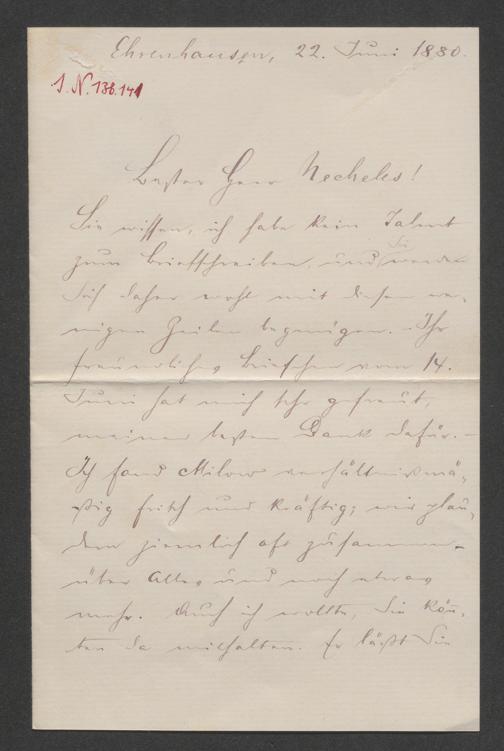 Ehrenhausen, 22. Juni 1880.
I. N. 136.141
Bester Herr Necheles!
Sie wissen, ich habe kein Talent
zum Briefschreiben, und
Sie
werden
sich daher wohl mit diesen we-
nigen Zeilen begnügen. – Ihr
freundliches Briefchen vom 14.
Juni hat mich sehr gefreut,
meinen besten Dank dafür. –
Ich fand Milow verhältnißmä-
ßig frisch und kräftig; wir plau-
dern ziemlich oft zusammen –
über Alles und noch etwas
mehr. Auch ich wollte, Sie könn-
ten da mithalten. Er läßt Sie